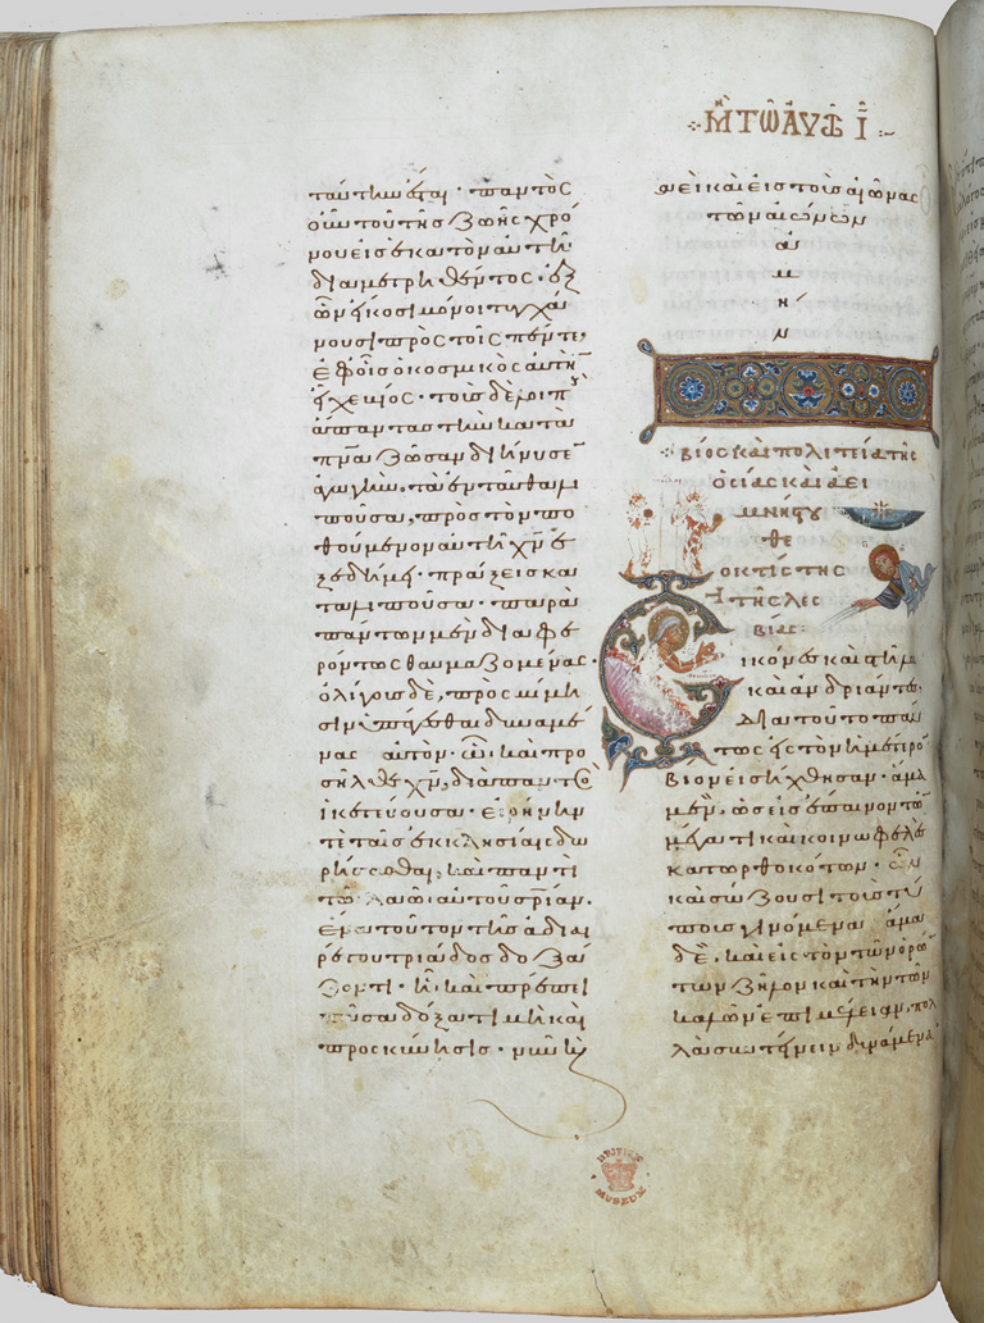 Μη ΤΩ ΑΥΤΩ Ῑ
παντὸς
οὖν τοῦ τῆς ζωῆς χρό
νου εἰς ἑκατὸν αὐτῆ
διαμετρηθέντος· ἐξ
ὧν εἴκοσι μόνοι τυγχά
νουσι πρὸς τοῖς πέντε,
ἐφ οἷς ὁ κοσμικὸς αὐτὴ
εἶχε βίος· τοῖς δὲ λοιπ
ἅπαντας τὴν κατὰ
πνα ζῶσαν διήνυσε
ἀγωγὴν. τὰ ἐνταῦθα λι
ποῦσα, πρὸς τὸν πο
θούμενον αὐτῆ χν ἐ
ξεδήμει· πράξεις κα
ταλιποῦσα· παρὰ
πάντων μὲν διαφε
ρόντως θαυμαζομένας·
ὀλίγοις δὲ, πρὸς μίμη
σιν δυναμέ
νας αὐτὸν· ὧ καὶ προ
σῆλθε χν, διαπαντὸς
ἱκετεύουσα· εἰρήνην
τὲ ταῖς ἐκκλησίαις δω
ρήσασθαι, καὶ παντὶ
τῶ λαῶ αὐτοῦ σριαν.
τῆς ἀδιαι
ρέτου τριάδος δοξά
ζοντι· ἧ καὶ πρέπει
πᾶσα δόξα τιμὴ καὶ
προσκύνησις· νῦν κ
ἀεὶ καὶ εἰς τοὺς αἰῶνας
τῶν αἰώνων
ἀ
μ
ή
ν
βίος καὶ πολιτεία τῆς
ὁσίας καὶ ἀει
μνήστου
θε
οκτίστης
τῆς λεσ
βίας
Εἰκόνες καὶ στῆλαι
καὶ ἀνδριάντες
διατοῦτο πάν
τως ἐς τὸν ἡμέτερον
βίον εἰσήχθησαν· ἅμα
μὲν, ὡς εἰς ἔπαινον τῶν
μέγα τι καὶ κοινωφελὲς
κατωρθοκότων·
καὶ σώζουσι τοῖς τύ
ποις γινόμενα ἅμα
δὲ, καὶ εἰς τὸν τῶν ὁρών
των ζῆλον καὶ τὴν τῶν
καλῶν ἐπιμέλειαν, πολ
δυνάμενα
BRITISH
MUSEUM